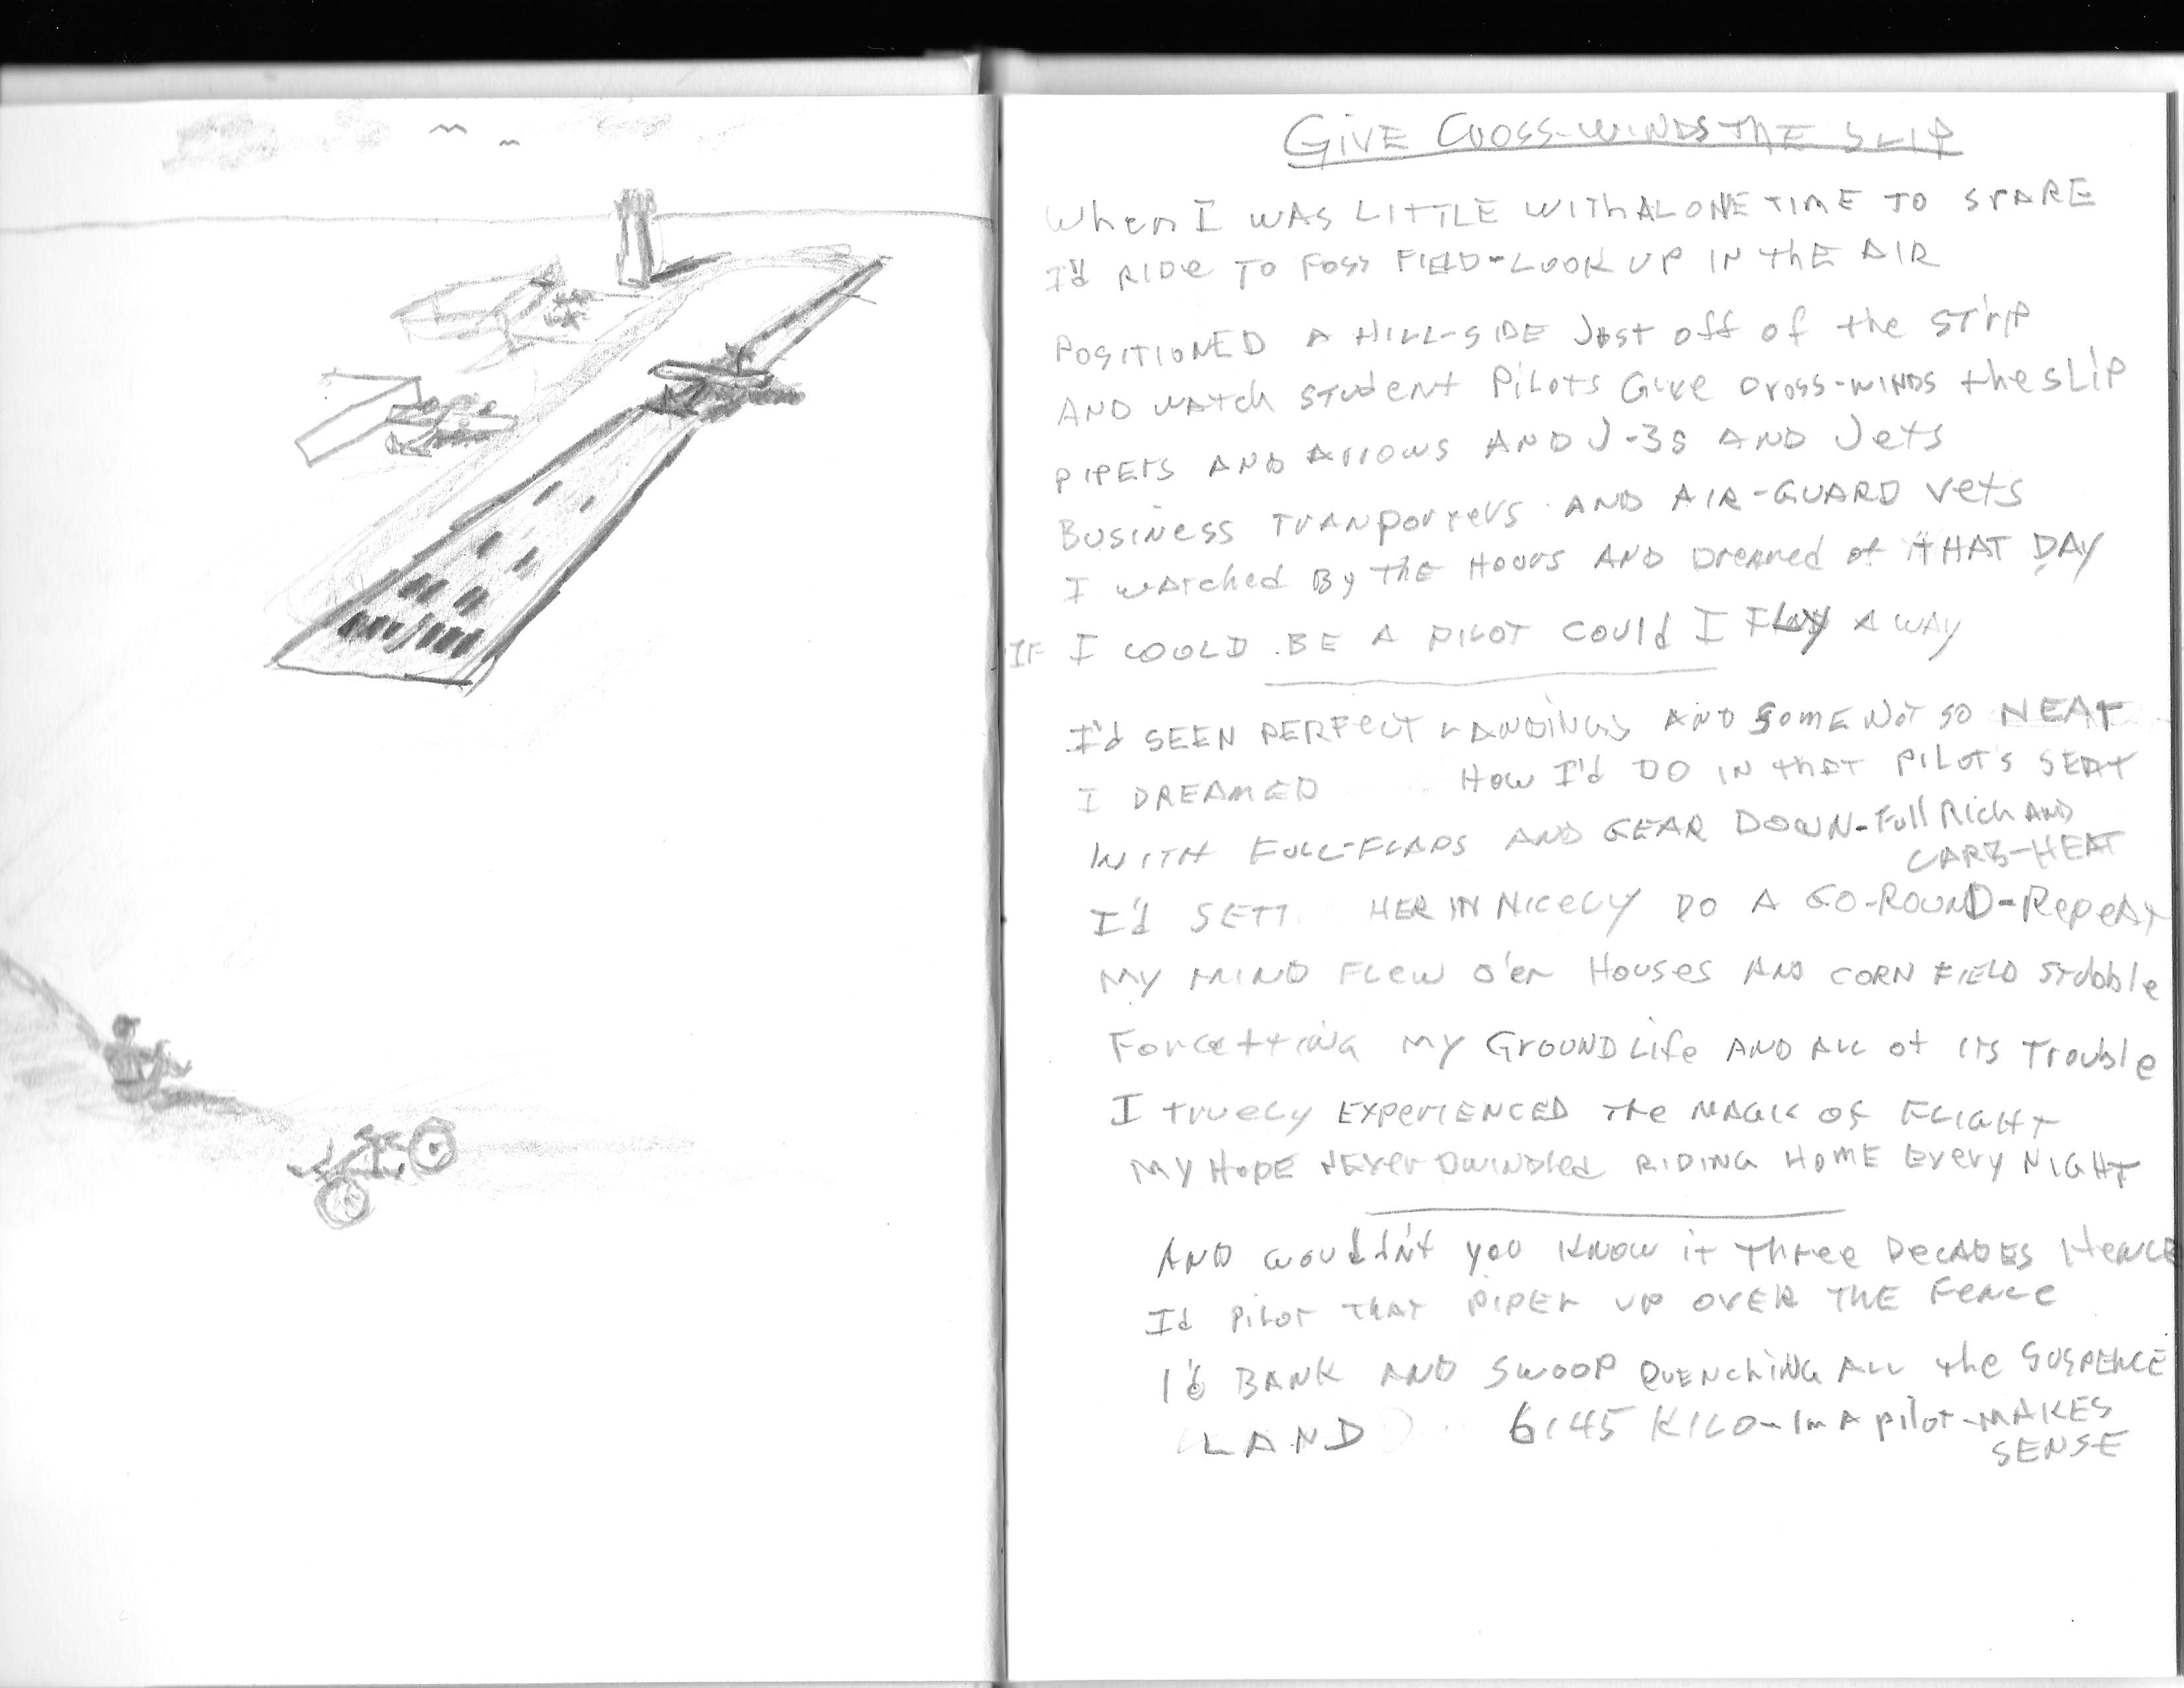 GIVE CROSS-WINDS THE SLIP
When I WAS LITTLE WITH ALONE TIME TO SPARE
I'd RIDE TO FOSS FIELD-LOOK UP IN the AIR
POSITIONED A HILL-SIDE JUST off of the STRIP
AND WATCH STUDENT PILOTS GIVE CROSS-WINDS the SLIP
PIPERS AND ARROWS AND J-3S AND JETS
BUSINESS TRANPORTERS AND AIR-GUARD VETS
I WATCHED BY THE HOURS AND DREAMED of THAT DAY
IF I COULD BE A PILOT COULD I FLY AWAY
I'd SEEN PERFECT LANDINGS AND SOME NOT SO NEAT
I DREAMED HOW I'd DO IN THAT PILOT'S SEAT
WITH FULL-FLAPS AND GEAR DOWN-FULL RICH AND
CARB-HEAT
I'd SETT HER IN NICELY DO A GO-ROUND-REPEAT
MY MIND FLEW O'ER HOUSES AND CORN FIELD STUBBLE
FORGETTING MY GROUND LIFE AND ALL of ITS TROUBLE
I TRUELY EXPERIENCED THE MAGIC OF FLIGHT
MY HOPE NEVER DWINDLED RIDING HOME EVERY NIGHT
AND WOULDN'T YOU KNOW IT THREE DECADES HENCE
I'd PILOT THAT PIPER UP OVER THE FENCE
I'd BANK AND SWOOP QUENCHING ALL the SUSPENCE
LAND 6145 KILO-Im A pilot-MAKES
SENSE